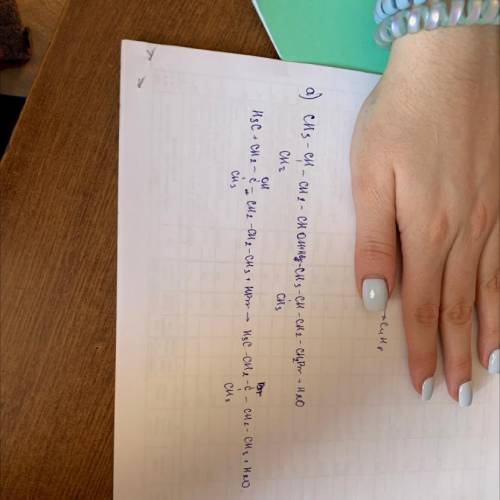 а) CH3 – CH – CH2 – CHOH+HBr–CH3–CH–CH2–CH2Br + H2O
CH2 CH3
OH Br
H3C + CH2 – C – CH2–CH2–CH3 + HBr → H3C–CH2–C – CH2–CH3 + H2O
CH3 CH3